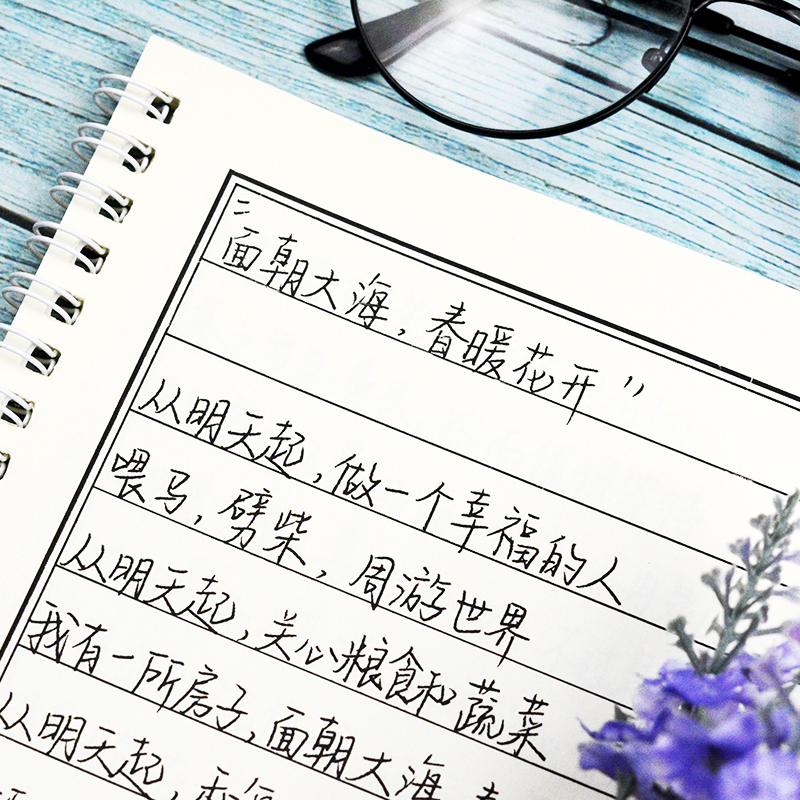 "面朝大海,春暖花开"
从明天起,做一个幸福的人
喂马,劈柴,周游世界
从明天起,关心粮食和蔬菜
我有一所房子,面朝大海,春
从明天起,和每